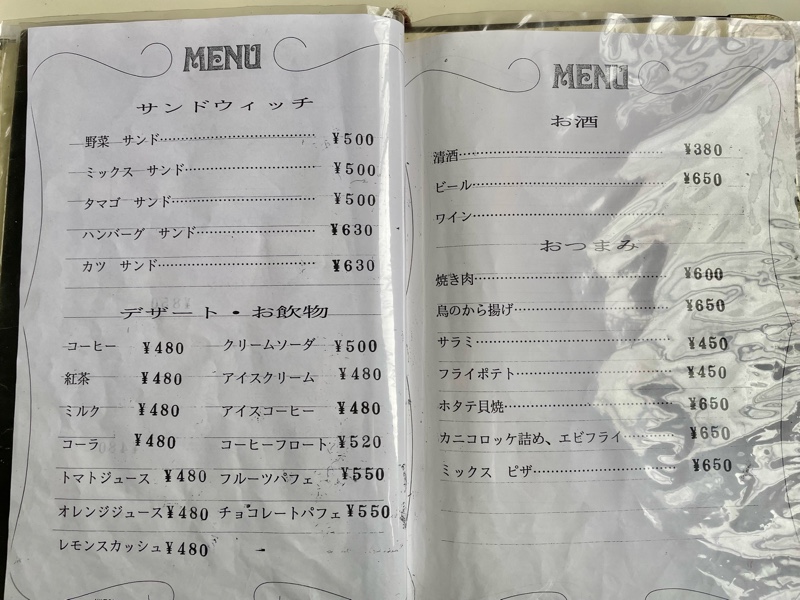 MENU
サンドウィッチ
野菜 サンド………………… ¥500
ミックス サンド………………… ¥500
タマゴ サンド………………… ¥500
ハンバーグ サンド………………… ¥630
カツ サンド………………… ¥630
デザート・お飲物
コーヒー ¥480 クリームソーダ ¥500
紅茶 ¥480 アイスクリーム ¥480
ミルク ¥480 アイスコーヒー ¥480
コーラ ¥480 コーヒーフロート ¥520
トマトジュース ¥480 フルーツパフェ ¥550
オレンジジュース ¥480 チョコレートパフェ ¥550
レモンスカッシュ ¥480
MENU
お酒
清酒………………… ¥380
ビール………………… ¥650
ワイン…………………
おつまみ
焼き肉………………… ¥600
鳥のから揚げ………………… ¥650
サラミ………………… ¥450
フライポテト………………… ¥450
ホタテ貝焼………………… ¥650
カニコロッケ詰め、エビフライ………… ¥650
ミックス ピザ………………… ¥650